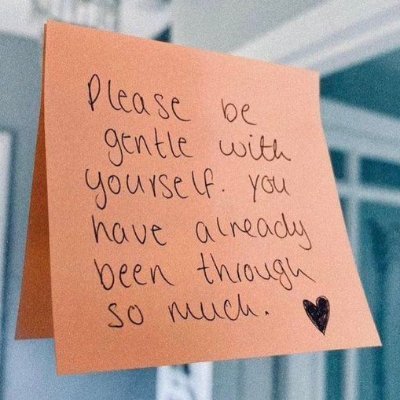 Please be
gentle with
yourself. you
have already
been through
so much. ♥